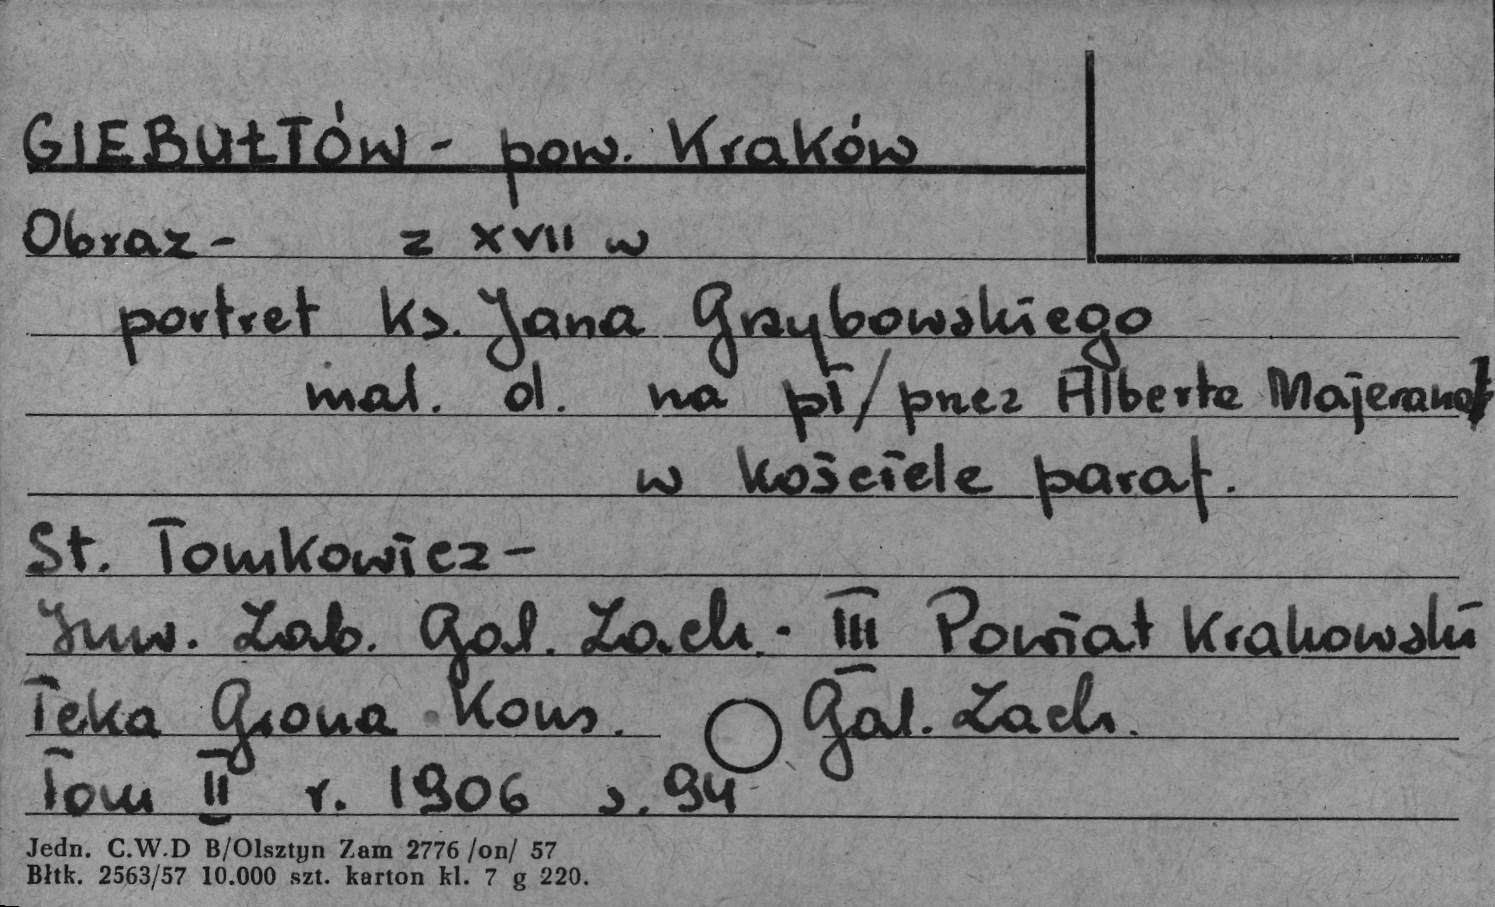 GIEBUŁTÓW - pow. Kraków
Obraz - z XVII w
portret ks. Jana Grzybowskiego
mal. ol. na pł/przez Alberta
w kościele paraf.
St. Tomkowicz -
Inw. Zab. Gal. Zach. - III Powiat Krakowski
Teka Grona Kons. Gal. Zach.
Tom II r. 1906 s. 94
Jedn. C.W.D B/Olsztyn Zam 2776 /on/ 57
Błtk. 2563/57 10.000 szt. karton kl. 7 g 220.